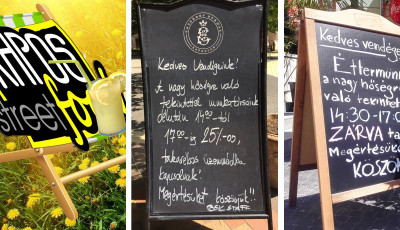 street
Kedves Vendégeink!
A nagy hőségre való
tekintettel munkatársaink
délután 14⁰⁰-tól
17⁰⁰-ig
takarékos üzemmódba
kapcsolnak!
Megértésüket köszönjük!!
STAFF
Kedves vendége
Éttermün
a nagy hőségr
való tekintet
14:30-17:0
ZÁRVA ta
Megértésük
KÖSZÖ